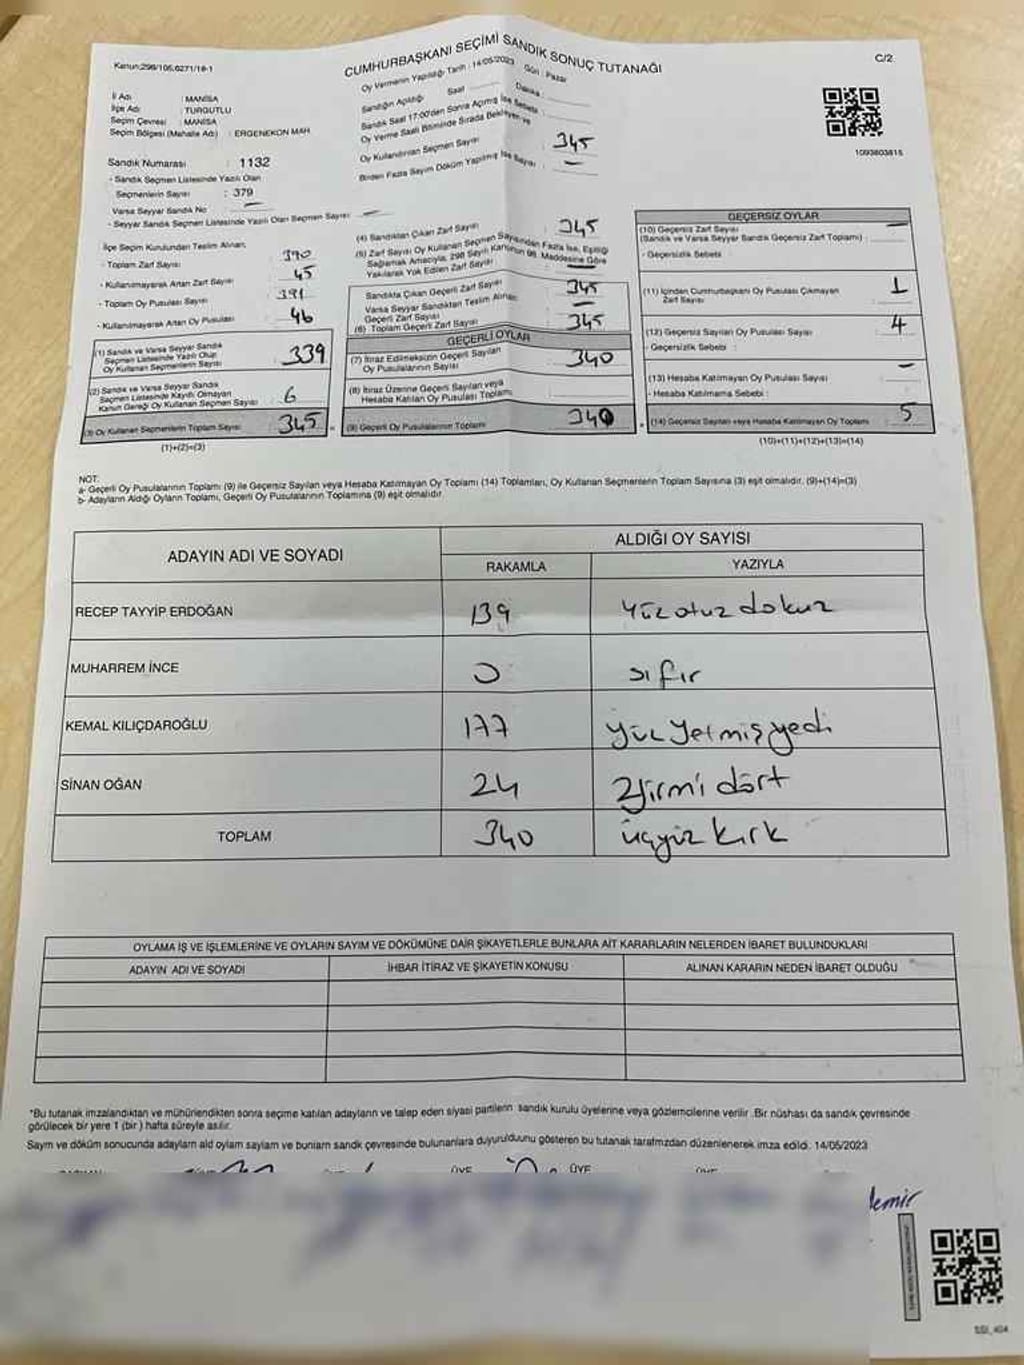 Kanun:298/105,6271/18-1
CUMHURBAŞKANI SEÇİMİ SANDIK SONUÇ TUTANAĞI
C/2
Oy Vermenin Yapıldığı Tarih : 14/05/2023 Gün : Pazar
Sandığın Açıldığı Saat Dakika :
Sandık Saat 17:00'den Sonra Açılmış İse Sebebi :
Oy Verme Saati Bitiminde Sırada Bekleyen ve
Oy Kullandırılan Seçmen Sayısı : 345
Birden Fazla Sayım Döküm Yapılmış İse Sayısı : —
İl Adı : MANİSA
İlçe Adı : TURGUTLU
Seçim Çevresi : MANİSA
Seçim Bölgesi (Mahalle Adı) : ERGENEKON MAH
1093803815
Sandık Numarası : 1132
- Sandık Seçmen Listesinde Yazılı Olan
Seçmenlerin Sayısı : 379
Varsa Seyyar Sandık No : —
- Seyyar Sandık Seçmen Listesinde Yazılı Olan Seçmen Sayısı : —
İlçe Seçim Kurulundan Teslim Alınan,
- Toplam Zarf Sayısı : 390
- Kullanılmayarak Artan Zarf Sayısı : 45
- Toplam Oy Pusulası Sayısı : 391
- Kullanılmayarak Artan Oy Pusulası : 46
(1) Sandık ve Varsa Seyyar Sandık
Seçmen Listesinde Yazılı Olup
Oy Kullanan Seçmenlerin Sayısı : 339
(2) Sandık ve Varsa Seyyar Sandık
Seçmen Listesinde Kayıtlı Olmayan
Kanun Gereği Oy Kullanan Seçmen Sayısı : 6
(3) Oy Kullanan Seçmenlerin Toplam Sayısı : 345
(1)+(2)=(3)
(4) Sandıktan Çıkan Zarf Sayısı : 345
(5) Zarf Sayısı Oy Kullanan Seçmen Sayısından Fazla İse, Eşitliği
Sağlamak Amacıyla, 298 Sayılı Kanunun 98. Maddesine Göre
Yakılarak Yok Edilen Zarf Sayısı : —
Sandıkta Çıkan Geçerli Zarf Sayısı : 345
Varsa Seyyar Sandıktan Teslim Alınan
Geçerli Zarf Sayısı : —
(6) Toplam Geçerli Zarf Sayısı : 345
GEÇERLİ OYLAR
(7) İtiraz Edilmeksizin Geçerli Sayılan
Oy Pusulalarının Sayısı : 340
(8) İtiraz Üzerine Geçerli Sayılan veya
Hesaba Katılan Oy Pusulası Toplamı :
(9) Geçerli Oy Pusulalarının Toplamı : 340
GEÇERSİZ OYLAR
(10) Geçersiz Zarf Sayısı : —
(Sandık ve Varsa Seyyar Sandık Geçersiz Zarf Toplamı) :
- Geçersizlik Sebebi :
(11) İçinden Cumhurbaşkanı Oy Pusulası Çıkmayan
Zarf Sayısı : 1
(12) Geçersiz Sayılan Oy Pusulası Sayısı : 4
- Geçersizlik Sebebi :
(13) Hesaba Katılmayan Oy Pusulası Sayısı : —
- Hesaba Katılmama Sebebi :
(14) Geçersiz Sayılan veya Hesaba Katılmayan Oy Toplamı : 5
(10)+(11)+(12)+(13)=(14)
NOT:
a- Geçerli Oy Pusulalarının Toplamı (9) ile Geçersiz Sayılan veya Hesaba Katılmayan Oy Toplamı (14) Toplamları, Oy Kullanan Seçmenlerin Toplam Sayısına (3) eşit olmalıdır. (9)+(14)=(3)
b- Adayların Aldığı Oyların Toplamı, Geçerli Oy Pusulalarının Toplamına (9) eşit olmalıdır.
ADAYIN ADI VE SOYADI
ALDIĞI OY SAYISI
RAKAMLA YAZIYLA
RECEP TAYYİP ERDOĞAN 139 Yüzotuz dokuz
MUHARREM İNCE 0 sıfır
KEMAL KILIÇDAROĞLU 177 yüz yetmiş yedi
SİNAN OĞAN 24 yirmi dört
TOPLAM 340 üçyüz kırk
OYLAMA İŞ VE İŞLEMLERİNE VE OYLARIN SAYIM VE DÖKÜMÜNE DAİR ŞİKAYETLERLE BUNLARA AİT KARARLARIN NELERDEN İBARET BULUNDUKLARI
ADAYIN ADI VE SOYADI İHBAR İTİRAZ VE ŞİKAYETİN KONUSU ALINAN KARARIN NEDEN İBARET OLDUĞU
*Bu tutanak imzalandıktan ve mühürlendikten sonra seçime katılan adayların ve talep eden siyasi partilerin sandık kurulu üyelerine veya gözlemcilerine verilir. Bir nüshası da sandık çevresinde
görülecek bir yere 1 (bir) hafta süreyle asılır.
Sayım ve döküm sonucunda adayların aldı oyların sayıların ve bunların sandık çevresinde bulunanlara duyurulduunu gösteren bu tutanak tarafımızdan düzenlenerek imza edildi. 14/05/2023
ÜYE ÜYE
demir